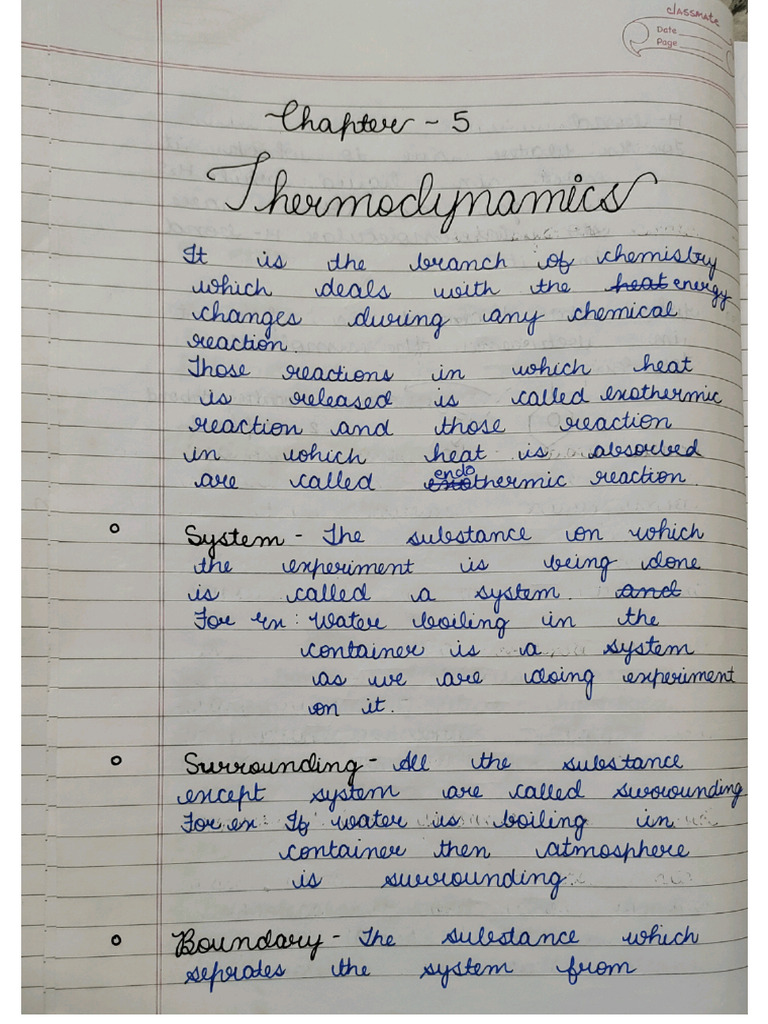 classmate
Date
Page
Chapter - 5
Thermodynamics
It is the branch of chemistry
which deals with the heat energy
changes during any chemical
reaction.
Those reactions in which heat
is released is called exothermic
reaction and those reaction
in which heat is absorbed
are called exo endothermic reaction.
System - The substance on which
the experiment is being done
is called a system. and
For ex: Water boiling in the
container is a system
as we are doing experiment
on it.
Surrounding - All the substance
except system are called surrounding
For ex: If water is boiling in
container then atmosphere
is surrounding.
Boundary - The substance which
seprates the system from